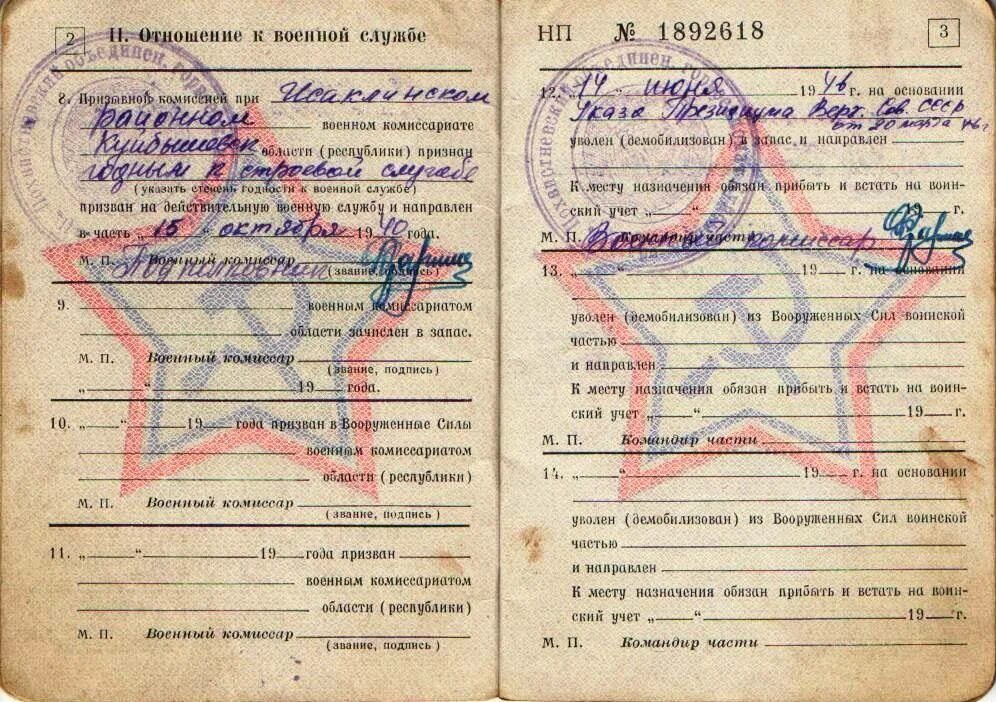 2
II. Отношение к военной службе
8. Призывной комиссией при Исаклинском
районном военном комиссариате
Куйбышевск. области (республики) признан
годным к строевой службе
(указать степень годности к военной службе)
призван на действительную военную службу и направлен
в часть „ 15 “ октября 1940 года.
М. П. Военный комиссар Подполковник
(звание, подпись)
9. военным комиссариатом
области зачислен в запас.
М. П. Военный комиссар
(звание, подпись)
„ “ 19 года.
10. „ “ 19 года призван в Вооруженные Силы
военным комиссариатом
области (республики)
М. П. Военный комиссар
(звание, подпись)
11. „ “ 19 года призван
военным комиссариатом
области (республики)
М. П. Военный комиссар
(звание, подпись)
НП № 1892618
3
12. „ 14 “ июня 1946 г. на основании
Указа Президиума Верх. Сов. СССР
от 20 марта 46 г
уволен (демобилизован) в запас и направлен
К месту назначения обязан прибыть и встать на воин-
ский учет „ “ 19 г.
М. П. Командир части Военный комиссар
13. „ “ 19 г. на основании
уволен (демобилизован) из Вооруженных Сил воинской
частью
и направлен
К месту назначения обязан прибыть и встать на воин-
ский учет „ “ 19 г.
М. П. Командир части
14. „ “ 19 г. на основании
уволен (демобилизован) из Вооруженных Сил воинской
частью
и направлен
К месту назначения обязан прибыть и встать на воин-
ский учет „ “ 19 г.
М. П. Командир части